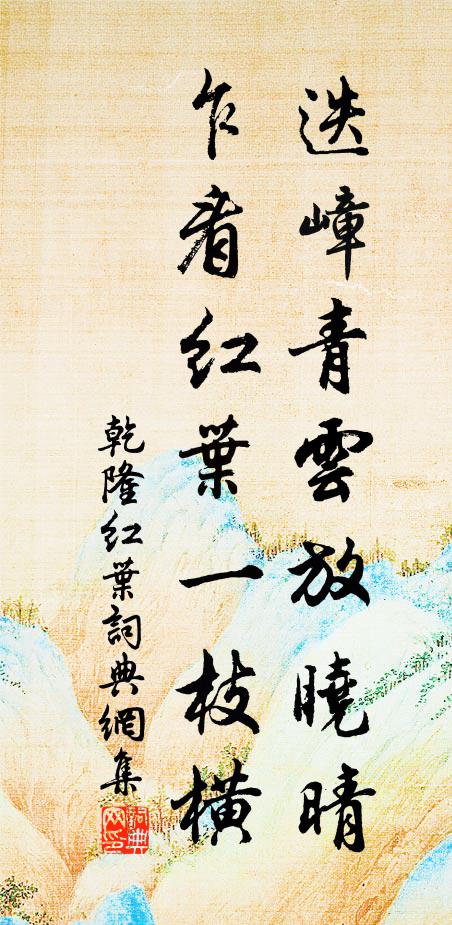 迭嶂青雲放曉晴
乍看红葉一枝橫
乾隆红葉詞典網集
詞典网印